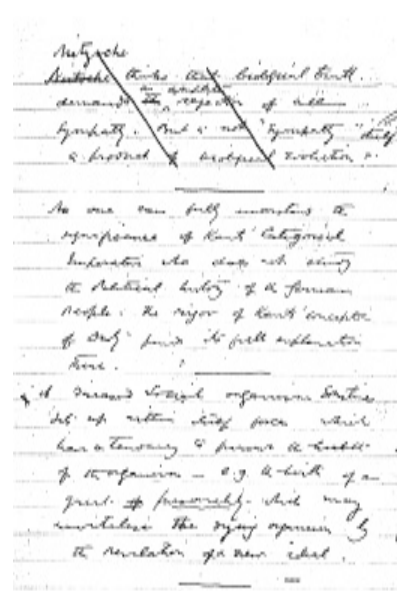 Nietzsche
Nietzsche thinks that biological truth
demands an rejection of all
Sympathy. But is not "Sympathy" itself
a product of biological evolution
No one can fully understand the
significance of Kant's Categorical
Imperative who does not study
the Political history of the German
People. The rigor of Kant's conception
of Duty finds its full explanation
there.
A diseased Social organism sometimes
set up within itself forces which
has a tendency to preserve the health
of the organism – e.g. the birth of a
great personality which may
the dying organism by
the revelation of a new ideal.